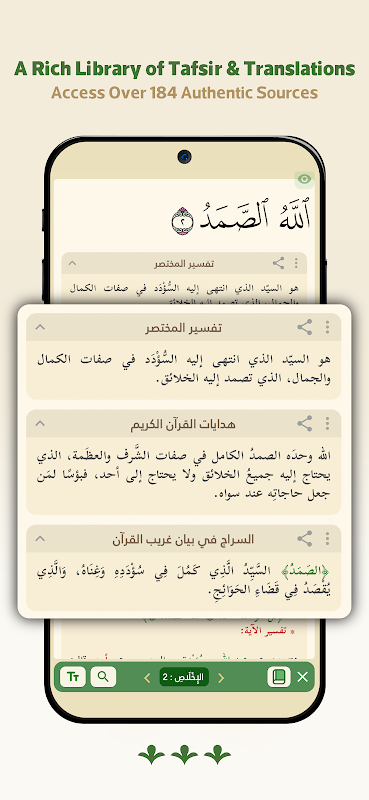 A Rich Library of Tafsir & Translations
Access Over 184 Authentic Sources
ٱللَّهُ ٱلصَّمَدُ ٢
تفسير المختصر
هو السيّد الذي انتهى إليه السُّؤْدَد في صفات الكمال
والجمال، الذي تصمد إليه الخلائق.
تفسير المختصر
هو السيّد الذي انتهى إليه السُّؤْدَد في صفات الكمال
والجمال، الذي تصمد إليه الخلائق.
هدايات القرآن الكريم
الله وحدَه الصمدُ الكامل في صفات الشَّرف والعظَمة، الذي
يحتاج إليه جميعُ الخلائق ولا يحتاج إلى أحد، فبؤسًا لمَن
جعل حاجاتِه عند سواه.
السراج في بيان غريب القرآن
﴿الصَّمَدُ﴾ السَّيِّدُ الَّذِي كَمُلَ فِي سُؤْدَدِهِ وَغِنَاهُ، وَالَّذِي
يُقْصَدُ فِي قَضَاءِ الحَوَائِجِ.
* تفسير الآية:
الإخلاص : 2
TT